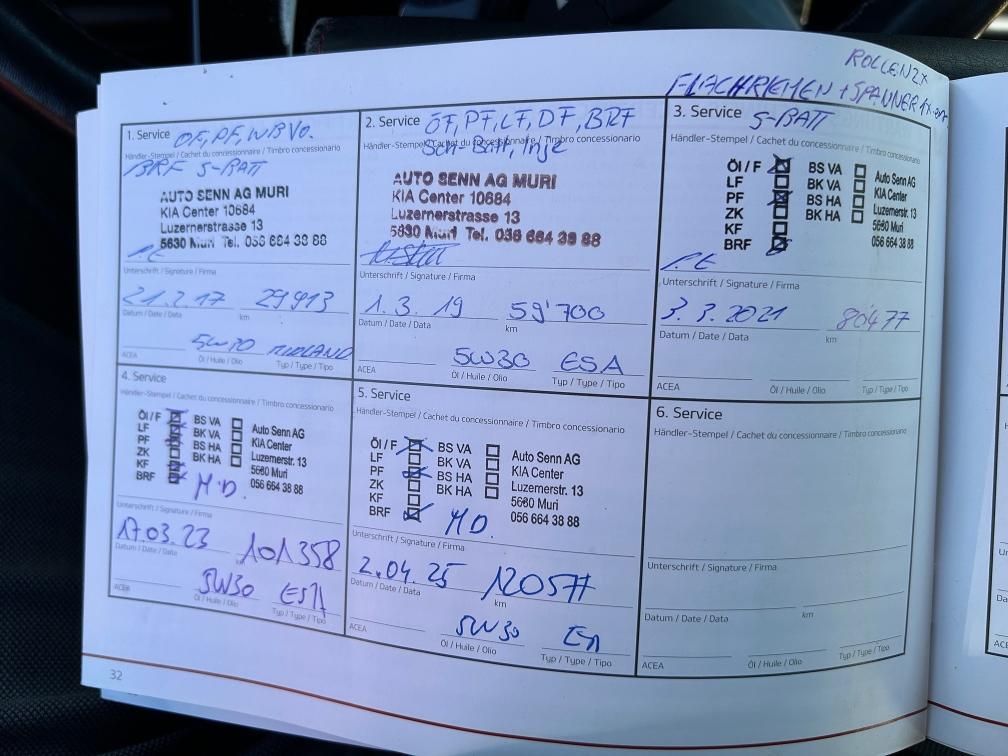 ROLLEN 2x
FLACHRIEMEN + SPANNER 1x
1. Service ÖF, PF, WBVO.
Händler-Stempel / Cachet du concessionnaire / Timbro concessionario
BRF S-BATT
AUTO SENN AG MURI
KIA Center 10684
Luzernerstrasse 13
5630 Muri Tel. 056 664 38 88
Unterschrift / Signature / Firma
21.2.17 29'413
Datum / Date / Data km
5W30 MIDLAND
ACEA Öl / Huile / Olio Typ / Type / Tipo
2. Service ÖF, PF, LF, DF, BRF
Händler-Stempel / Cachet du concessionnaire / Timbro concessionario
Sch-Batt,
AUTO SENN AG MURI
KIA Center 10684
Luzernerstrasse 13
5630 Muri Tel. 056 664 38 88
Unterschrift / Signature / Firma
1.3.19 59'700
Datum / Date / Data km
5W30 ESA
ACEA Öl / Huile / Olio Typ / Type / Tipo
3. Service S-BATT
Händler-Stempel / Cachet du concessionnaire / Timbro concessionario
Öl / F BS VA Auto Senn AG
LF BK VA KIA Center
PF BS HA Luzernerstr. 13
ZK BK HA 5630 Muri
KF 056 664 38 88
BRF
Unterschrift / Signature / Firma
3.3.2021 80477
Datum / Date / Data km
ACEA Öl / Huile / Olio Typ / Type / Tipo
4. Service
Händler-Stempel / Cachet du concessionnaire / Timbro concessionario
Öl / F BS VA Auto Senn AG
LF BK VA KIA Center
PF BS HA Luzernerstr. 13
ZK BK HA 5630 Muri
KF 056 664 38 88
BRF M D.
Unterschrift / Signature / Firma
17.03.23 101358
Datum / Date / Data km
5W30 ESA
ACEA Öl / Huile / Olio Typ / Type / Tipo
5. Service
Händler-Stempel / Cachet du concessionnaire / Timbro concessionario
Öl / F BS VA Auto Senn AG
LF BK VA KIA Center
PF BS HA Luzernerstr. 13
ZK BK HA 5630 Muri
KF 056 664 38 88
BRF M D.
Unterschrift / Signature / Firma
2.04.25
Datum / Date / Data km
5W30
ACEA Öl / Huile / Olio Typ / Type / Tipo
6. Service
Händler-Stempel / Cachet du concessionnaire / Timbro concessionario
Unterschrift / Signature / Firma
Datum / Date / Data km
ACEA Öl / Huile / Olio Typ / Type / Tipo
32